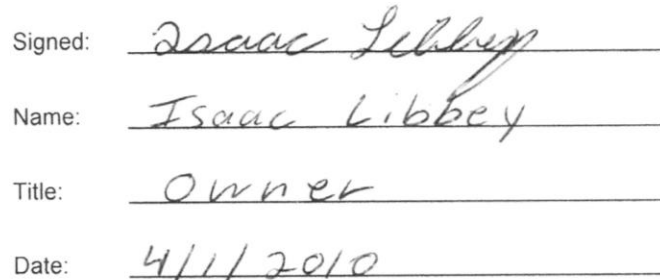 Signed: Isaac Libbey
Name: Isaac Libbey
Title: Owner
Date: 4/1/2010